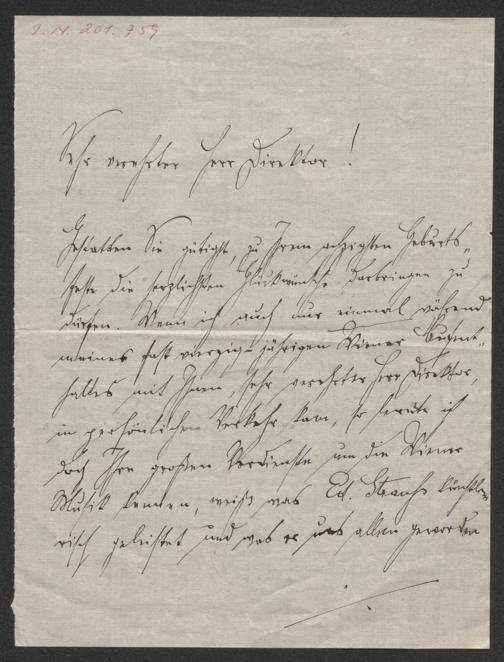 J. N. 201.759
Sehr verehrter Herr Direktor!
Gestatten Sie gütigst, zu Ihrem achzigsten Geburts„
feste die herzlichsten Glückwünsche darbringen zu
dürfen. Wenn ich auch nur einmal während
meines fast vierzig-jährigen Wiener Aufent„
haltes mit Ihnen, sehr verehrter Herr Direktor,
in persönlichen Verkehr kam, so lernte ich
doch Ihre großen Verdienste um die Wiener
Musik kennen, weiß was Ed. Strauß künstle„
risch geleistet und was er uns allen geworden